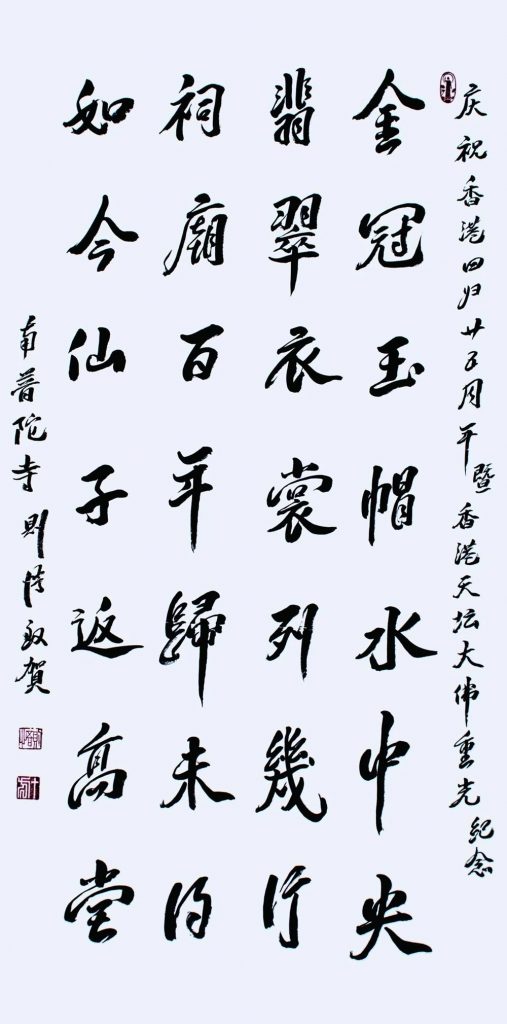 庆祝香港回归廿五周年暨香港天坛大佛重光纪念
金冠玉帽水中央
翡翠衣裳列幾行
祠廟百年歸未得
如今仙子返高堂
南普陀寺则悟敬贺